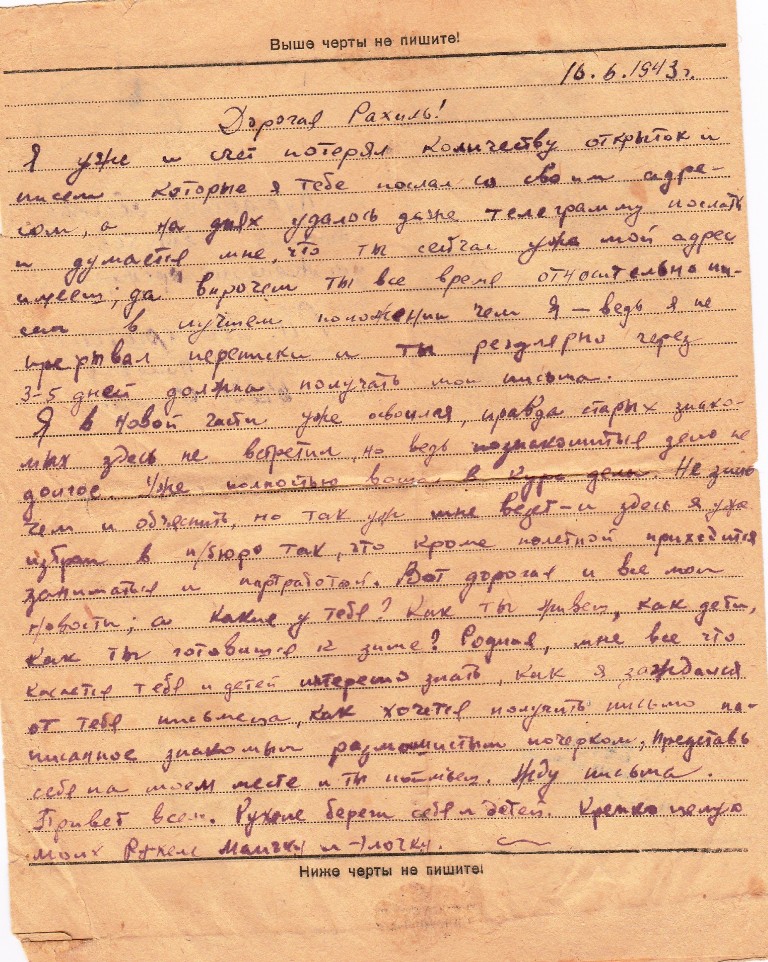 Выше черты не пишите!
16.6.1943 г.
Дорогая Рахиль!
Я уже и счет потерял количеству открыток и
писем которые я тебе послал со своим адре-
сом, а на днях удалось даже телеграмму послать
и думается мне, что ты сейчас уже мой адрес
имеешь; да впрочем ты все время относительно пи-
сем в лучшем положении чем я — ведь я не
прерывал переписки и ты регулярно через
3-5 дней должна получать мои письма.
Я в новой части уже освоился, правда старых знако-
мых здесь не встретил, но ведь познакомиться дело не
долгое. Уже полностью вошел в курс дела. Не знаю
чем и объяснить, но так уж мне везет — и здесь я уже
избран в п/бюро так, что кроме полетной приходится
заниматься и партработой. Вот дорогая и все мои
новости; а какие у тебя? Как ты живешь, как дети,
как ты готовишься к зиме? Родная, мне все что
касается тебя и детей интересно знать, как я заждался
от тебя письмеца, как хочется получить письмо на-
писанное знакомым размашистым почерком, представь
себя на моем месте и ты поймешь. Жду письма.
Привет всем. Рухеле береги себя и детей. Крепко целую
моих Рухеле Маичку и Элочку.
Ниже черты не пишите!